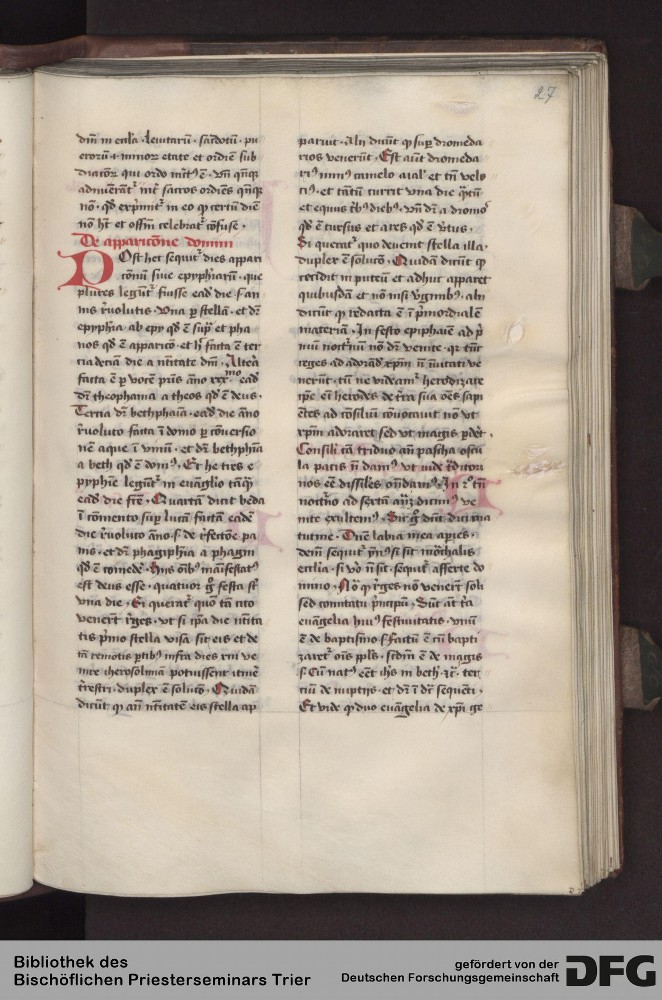 27
dm̄ in eccl̄a · leuitarū · sac̄dotū · pu
erorū · minor etate et ordīe sub
diacōr qui ordo
non
nō h̄t et offm̄ celebrat᷑ cōfuse ·
De apparicōne domini
Post hec sequit᷑ dies appari
cōnū siue epyphiarū · que
plures legūt᷑ fuisse eadē die s̄ an
nis reuolutis · Vna p̄ stella · et dr̄
epyphīa · ab epy qd̄ ē sup̄ et pha
nos qd̄ ē apparicō · et h̄ facta ē ter
cia decīa die a natītate dm̄ · Altera
facta ē p̄ vocē pr̄is āno xxxmo eadē
dr̄ theophania a theos qd̄ ē deus ·
Tercia dr̄ bethphaīa · eadē die āno
reuoluto facta ī domo p̄ conuersio
nē aque ī vinū · et dr̄ bethphāia
a beth qd̄ ē domꝰ · Et he tres e
pyphīe legūt᷑ in euāḡlio tāq̄
eadē die · Quartā dicit beda
ī cōmento sup̄ lucā factā eadē
die reuoluto āno · s̄ de refectōe pa
nis · et dr̄ phagiphīa a phagin
qd̄ ē comedē · Hiis oībꝰ manifestatꝰ
est deus esse · quatuor ḡ festa st̄
vna die · Et querat᷑ quō tā cito
venerūt reges · vt si ip̄a die natīta
tis p̄mo stella visa sit eis et de
tā remotis p̄tibꝰ infra dies xiii ve
nire iherosolimā potuissent itinē
terrestri · duplex ē solucō · Quidā
dicūt q̄ an̄ natītatē eis stella ap
paruit · Alij dicūt q̄ sup̄ dromeda
rios venerūt · Est aūt dromeda
riꝰ minꝰ camelo aīal et tn̄ velo
ciꝰ · et tātū currit vna die q̄tū
et equus tribꝰ diebꝰ · vn̄ dr̄ a dromos
qd̄ ē cursus et ares qd̄ ē v̄tus ·
Si querat᷑ quo deuenit stella illa ·
duplex ē solucō · Quidā dicūt q̄
cecidit in puteū et adhuc apparet
quibusdā et nō nisi v̄ginibꝰ · alij
dicūt q̄ redacta ē ī p̄mordialē
materiā · In festo epiphaīe ad p̄
mū noct̄nū nō dr̄ venite · qr̄ tūc
reges ad adorād xp̄m nō īuitati ve
nerūt · tū ne videam᷑ herodizare
ip̄e eī herodes de terra sua oēs sapi
ētes ad cōsiliū cōuocauit nō vt
xp̄m adoraret sed vt magis p̄det ·
Consili tā triduo an̄ pascha oscu
la pacis nō damꝰ vt iude proditori
nos eē dissiles ostēdamꝰ · In 3o tn̄
noct̄no ad sextā dicimꝰ ve
nite exultemꝰ · Sic ḡ dn̄t dici ma
tutine · Dn̄e labia mea ap̄ies ·
dem̄ sequit᷑ ymꝰ si sit monachalis
eccl̄ia · si vō nō sit · sequit᷑ afferte do
mino · Nō q̄ reges nō venerūt soli
sed comitatu p̄ncipū · Sūt aūt tria
euāgelia huiꝰ festiuitatis · vnū
ē de baptismo s̄ factū ē cū bapti
zaret᷑ oīs pp̄ls · scdm̄ ē de magis
s̄ Cū natꝰ eēt ih̄s in beth · 2c · ter
ciū de nuptiis · et dr̄ ī die sequēti ·
Et vide q̄ duo euāgelia de xp̄i ge
Bibliothek des
Bischöflichen Priesterseminars Trier
gefördert von der
Deutschen Forschungsgemeinschaft
DFG